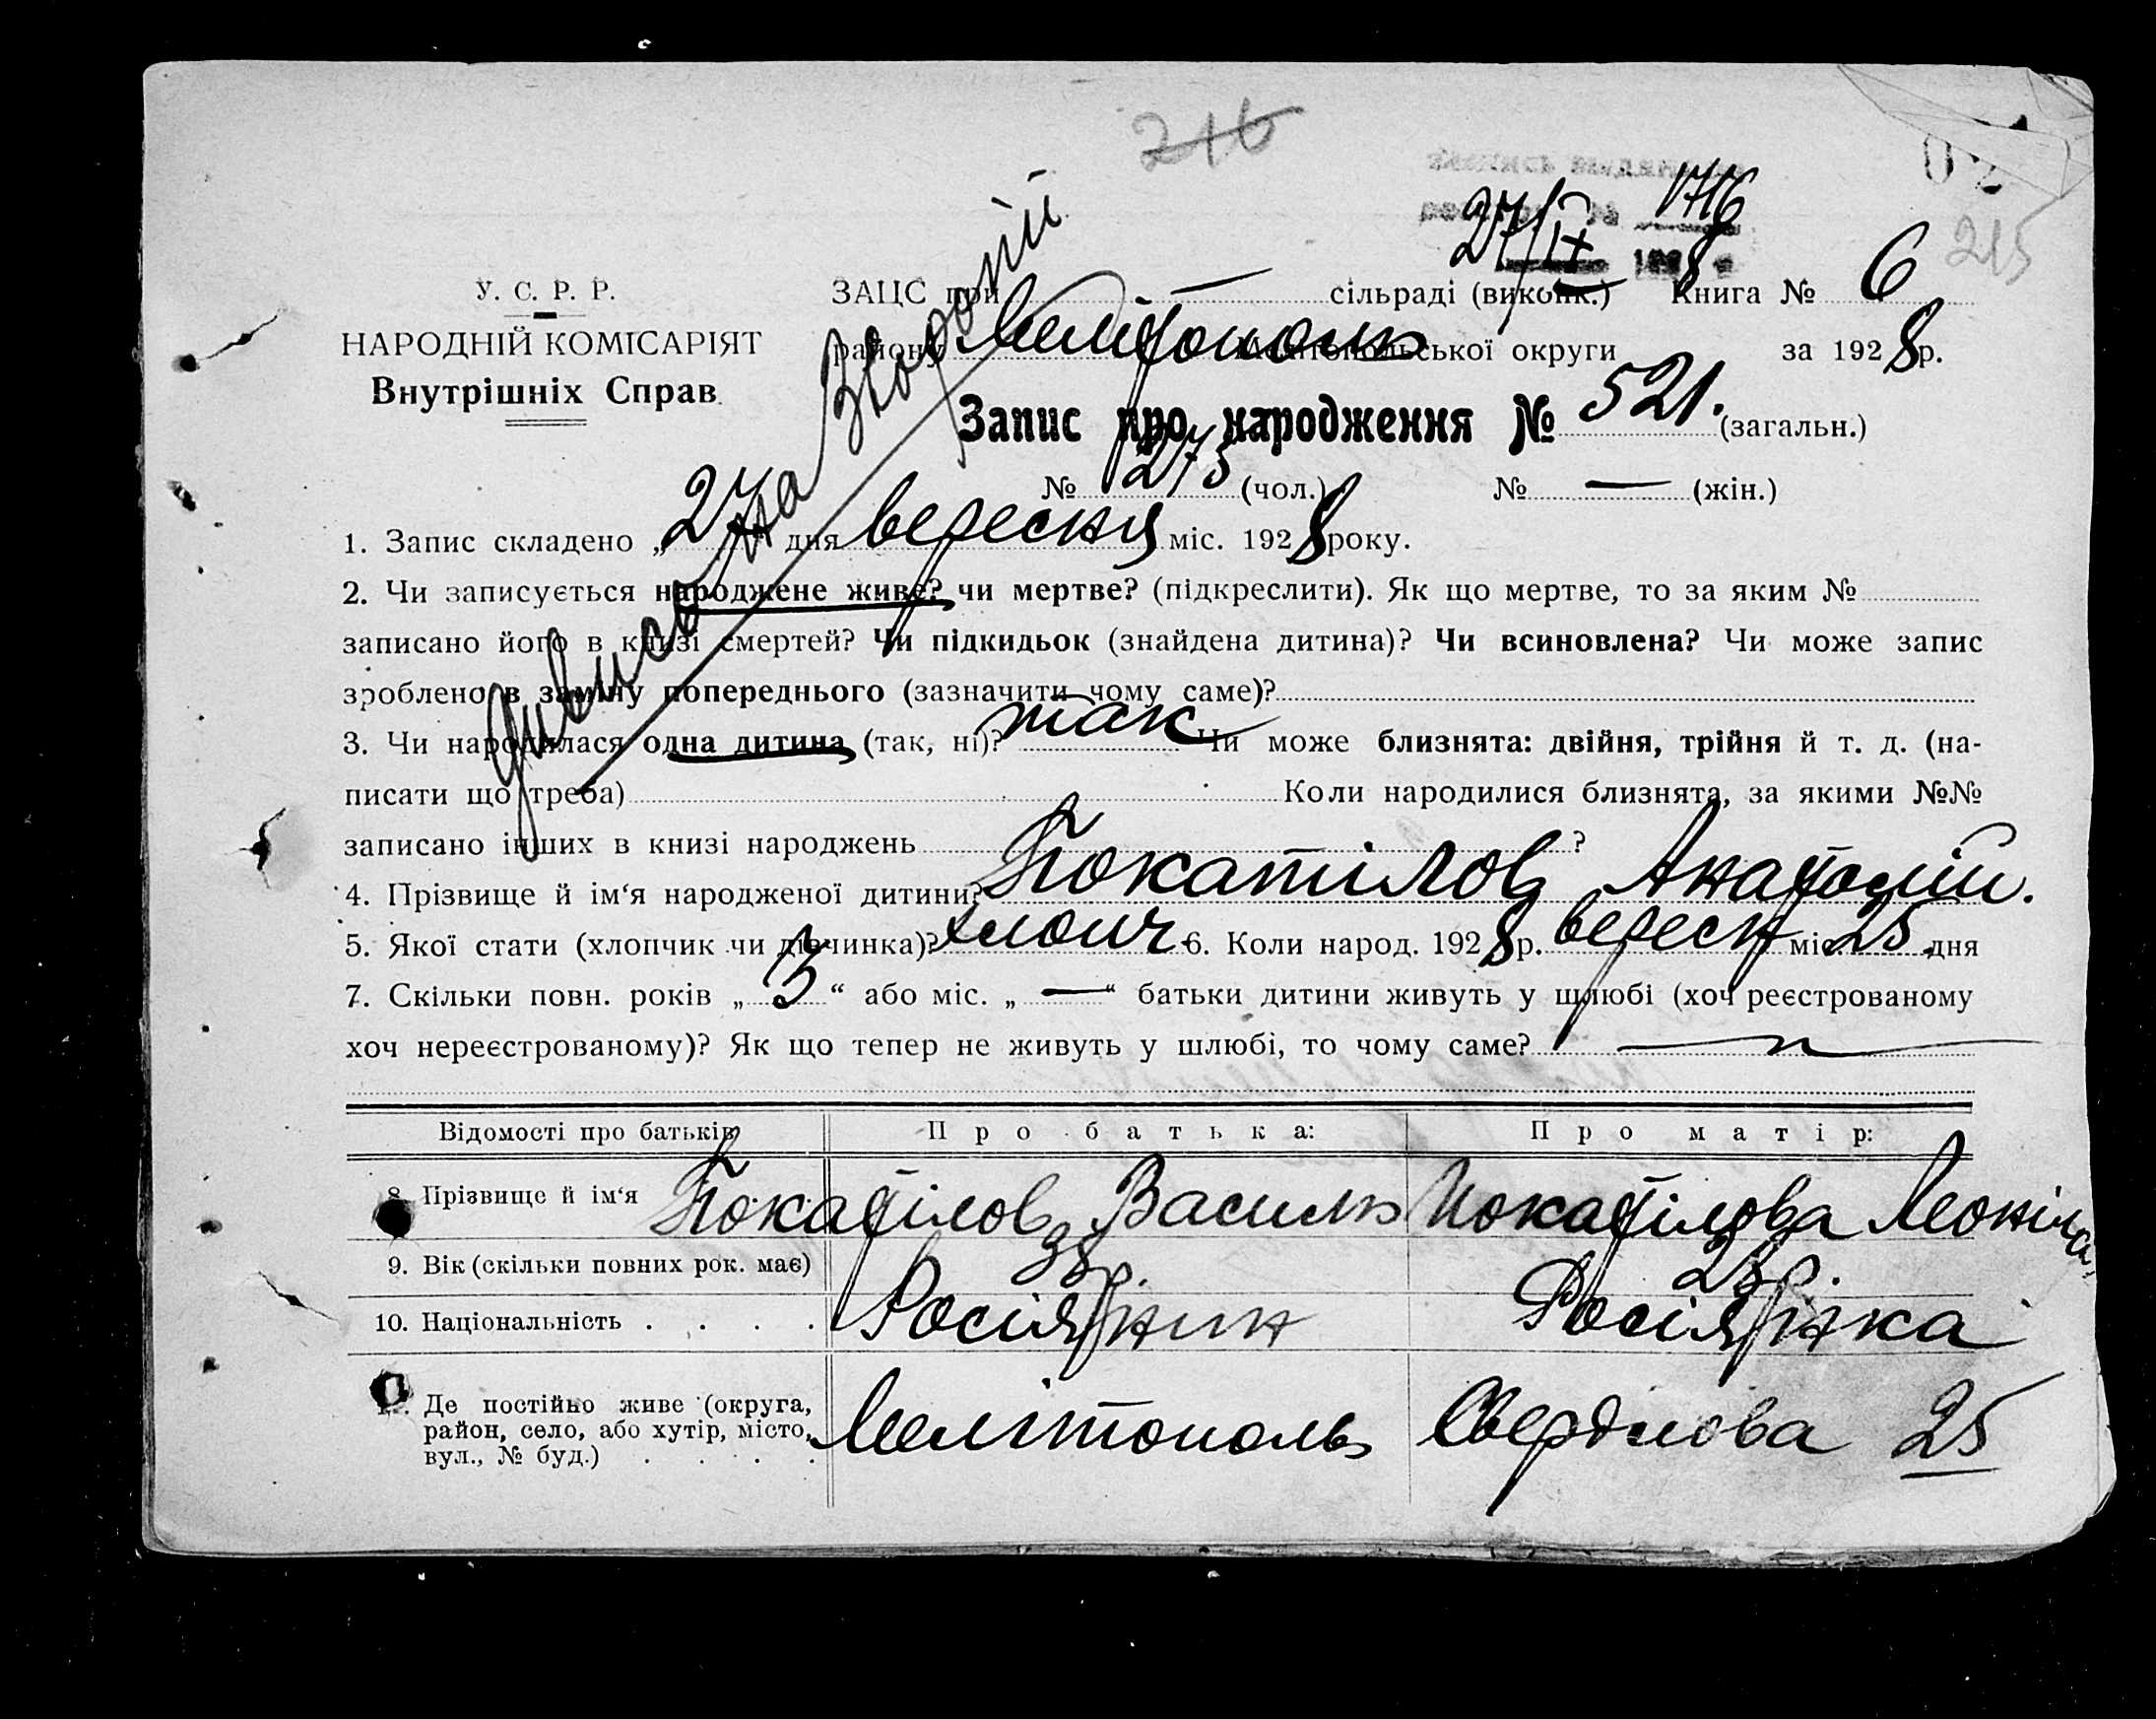 216
27/IX 1716
8
215
У. С. Р. Р.
НАРОДНІЙ КОМІСАРІЯТ
Внутрішніх Справ
ЗАЦС при — сільраді (викон.) Книга № 6
району Мелітополь Мелітопольської округи за 1928 р.
Запис про народження № 521. (загальн.)
№ 275 (чол.) № — (жін.)
дивись на звороті
1. Запис складено „27 дня вересня міс. 1928 року.
2. Чи записується народжене живе? чи мертве? (підкреслити). Як що мертве, то за яким №
записано його в книзі смертей? Чи підкидьок (знайдена дитина)? Чи всиновлена? Чи може запис
зроблено в заміну попереднього (зазначити чому саме)?
3. Чи народилася одна дитина (так, ні)? так Чи може близнята: двійня, трійня й т. д. (на-
писати що треба) Коли народилися близнята, за якими №№
записано інших в книзі народжень ?
4. Прізвище й ім‘я народженої дитини? Покатілов Анатолій.
5. Якої стати (хлопчик чи дівчинка)? хлопч 6. Коли народ. 1928 р. вересн міс. 25 дня
7. Скільки повн. років „ 3 “ або міс. „ — “ батьки дитини живуть у шлюбі (хоч реєстрованому
хоч нереєстрованому)? Як що тепер не живуть у шлюбі, то чому саме?
Відомості про батьків Про батька: Про матір:
8. Прізвище й ім‘я Покатілов Василь Покатілова Леоніла
9. Вік (скільки повних рок. має) 38 р. 28 р.
10. Національність . . . . Росіянин Росіянка
Де постійно живе (округа, район, село, або хутір, місто, вул., № буд.) . . . . Мелітополь Свердлова 25